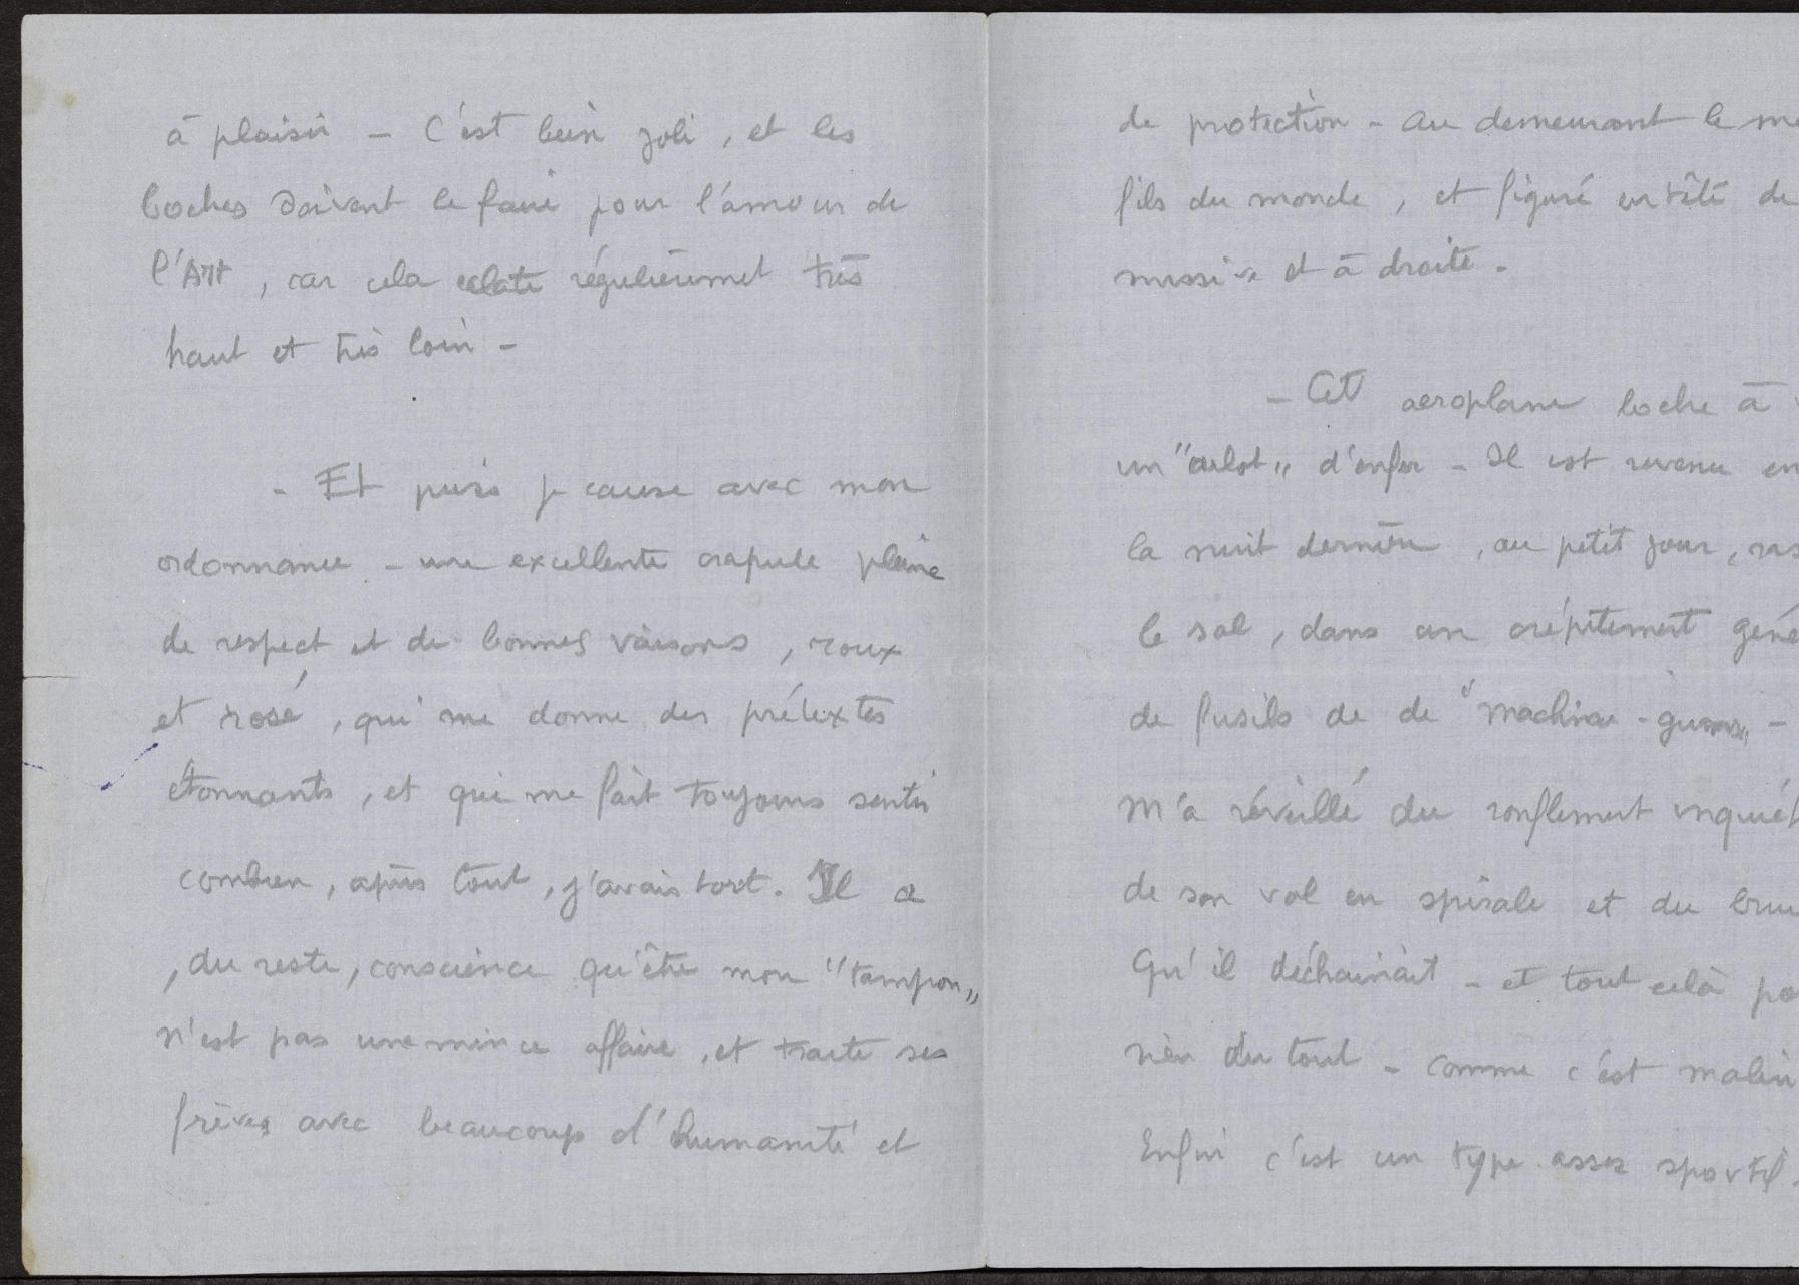 à plaisir - C'est bien joli, et les
boches doivent le faire pour l'amour de
l'Art, car cela eclate régulièrement très
haut et très loin -
- Et puis je cause avec mon
ordonnance - une excellente crapule pleine
de respect et de bonnes raisons, roux
et rosé, qui me donne des prétextes
étonnants, et qui me fait toujours sentir
combien, après tout, j'avais tort. Il a
, du reste, conscience qu'être mon "tampon"
n'est pas une mince affaire, et traite ses
frères avec beaucoup d'humanité et
de protection - Au demeurant le
fils du monde, et figuré en tête de
missive et à droite -
- Cet aeroplane boche à
un "culot" d'enfer - Il est revenu en
la nuit dernière, au petit jour,
le sol, dans un crépitement
de fusils de de "machine-guns" -
M'a réveillé du ronflement
de son vol en spirale et du
Qu'il déchainait - et tout celà
rien du tout - comme c'est malin
Enfin c'est un type assez sportif.